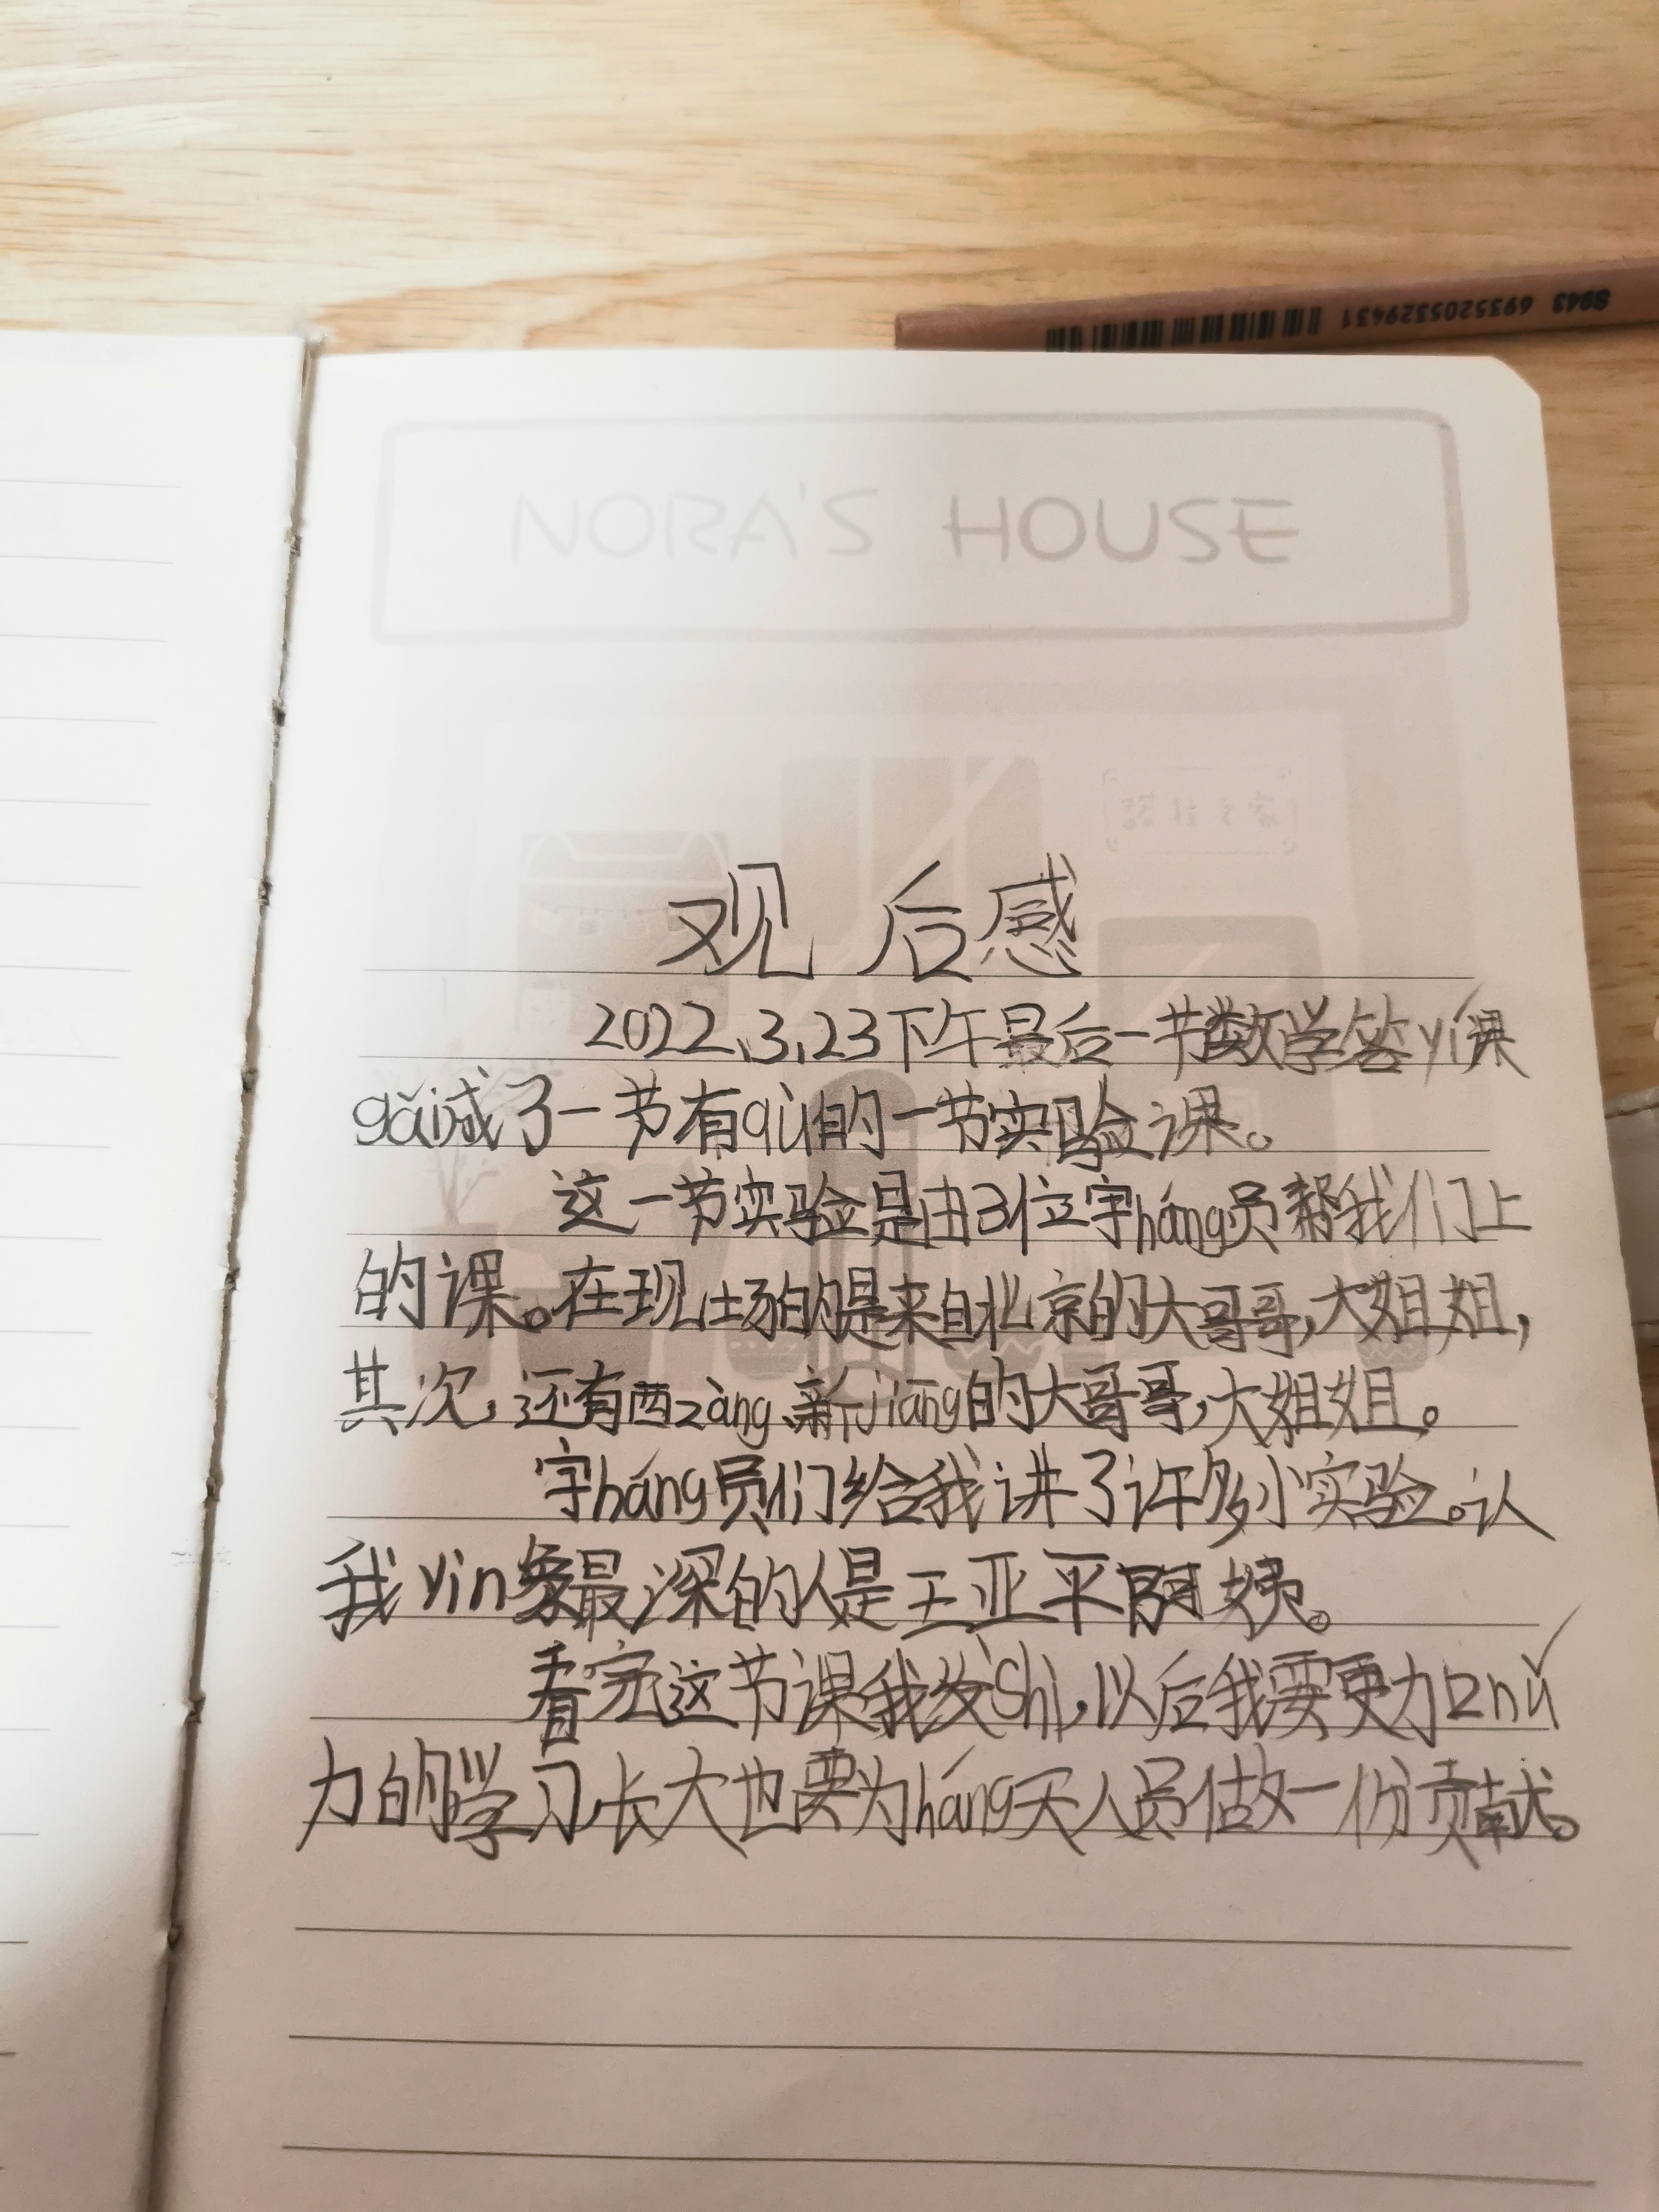 8943 6935205329431
NORA'S HOUSE
观后感
2022.3.23下午最后一节数学答yí课
gǎi减了一节有qù的一节实验课。
这一节实验是由3位宇háng员帮我们上
的课。在现场的是来自北京的大哥哥,大姐姐,
其次,还有西zàng、新jiāng的大哥哥,大姐姐。
宇háng员们给我讲了许多小实验。认
我yin象最深的人是王亚平阿姨。
看完这节课我发shì,以后我要更加nǔ
力的学习,长大也要为háng天人员做一份贡献。